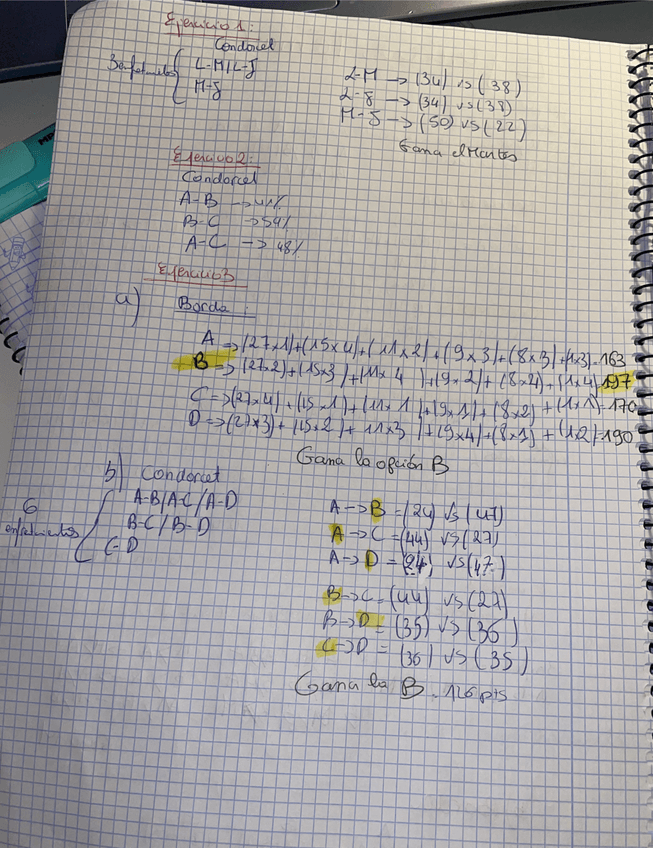 Ejercicio 1:
Condorcet
3 enfrentamientos { L-M / L-J
M-J
L-M → (34) vs (38)
L-J → (34) vs (38)
M-J → (50) vs (22)
Gana el Martes
Ejercicio 2:
Condorcet
A-B → 41%
B-C → 54%
A-C → 48%
Ejercicio 3
a) Borda:
A => (27x1)+(15x4)+(11x2)+(9x3)+(8x3)+(1x3)=163
B => (27x2)+(15x3)+(11x4)+(9x2)+(8x4)+(1x4)=197
C => (27x4)+(15x1)+(11x1)+(9x1)+(8x2)+(1x1)=170
D => (27x3)+(15x2)+(11x3)+(9x4)+(8x1)+(1x2)=190
Gana la opción B
b) Condorcet
6 enfrentamientos { A-B / A-C / A-D
B-C / B-D
C-D
A → B = (24) vs (47)
A → C = (44) vs (27)
A → D = (24) vs (47)
B → C = (44) vs (27)
B → D = (35) vs (36)
C → D = (36) vs (35)
Gana la B. 126 pts